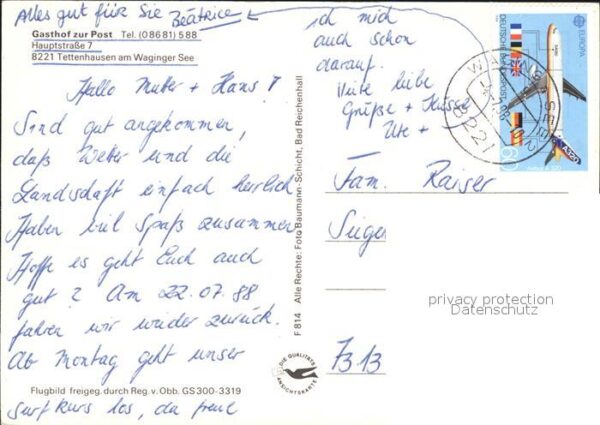 Alles gut für Sie Béatrice
Gasthof zur Post Tel. (08681) 588
Hauptstraße 7
8221 Tettenhausen am Waginger See
Hallo Mutter + Hans!
Sind gut angekommen,
daß Wetter und die
Landschaft einfach herrlich
Haben viel Spaß zusammen
Hoffe es geht Euch auch
gut? Am 22.07.88
fahren wir wieder zurück.
Ab Montag geht unser
Surfkurs los, da freue
Flugbild freigeg. durch Reg. v. Obb. GS 300-3319
F 814 Alle Rechte: Foto Baumann-Schicht, Bad Reichenhall
DIE QUALITÄTS
ANSICHTSKARTE
ich mich
auch schon
darauf.
Viele liebe
Grüße + Küsse
Ute +
Fam. Raiser
7313
DEUTSCHE BUNDESPOST
EUROPA
A320
8221
privacy protection
Datenschutz